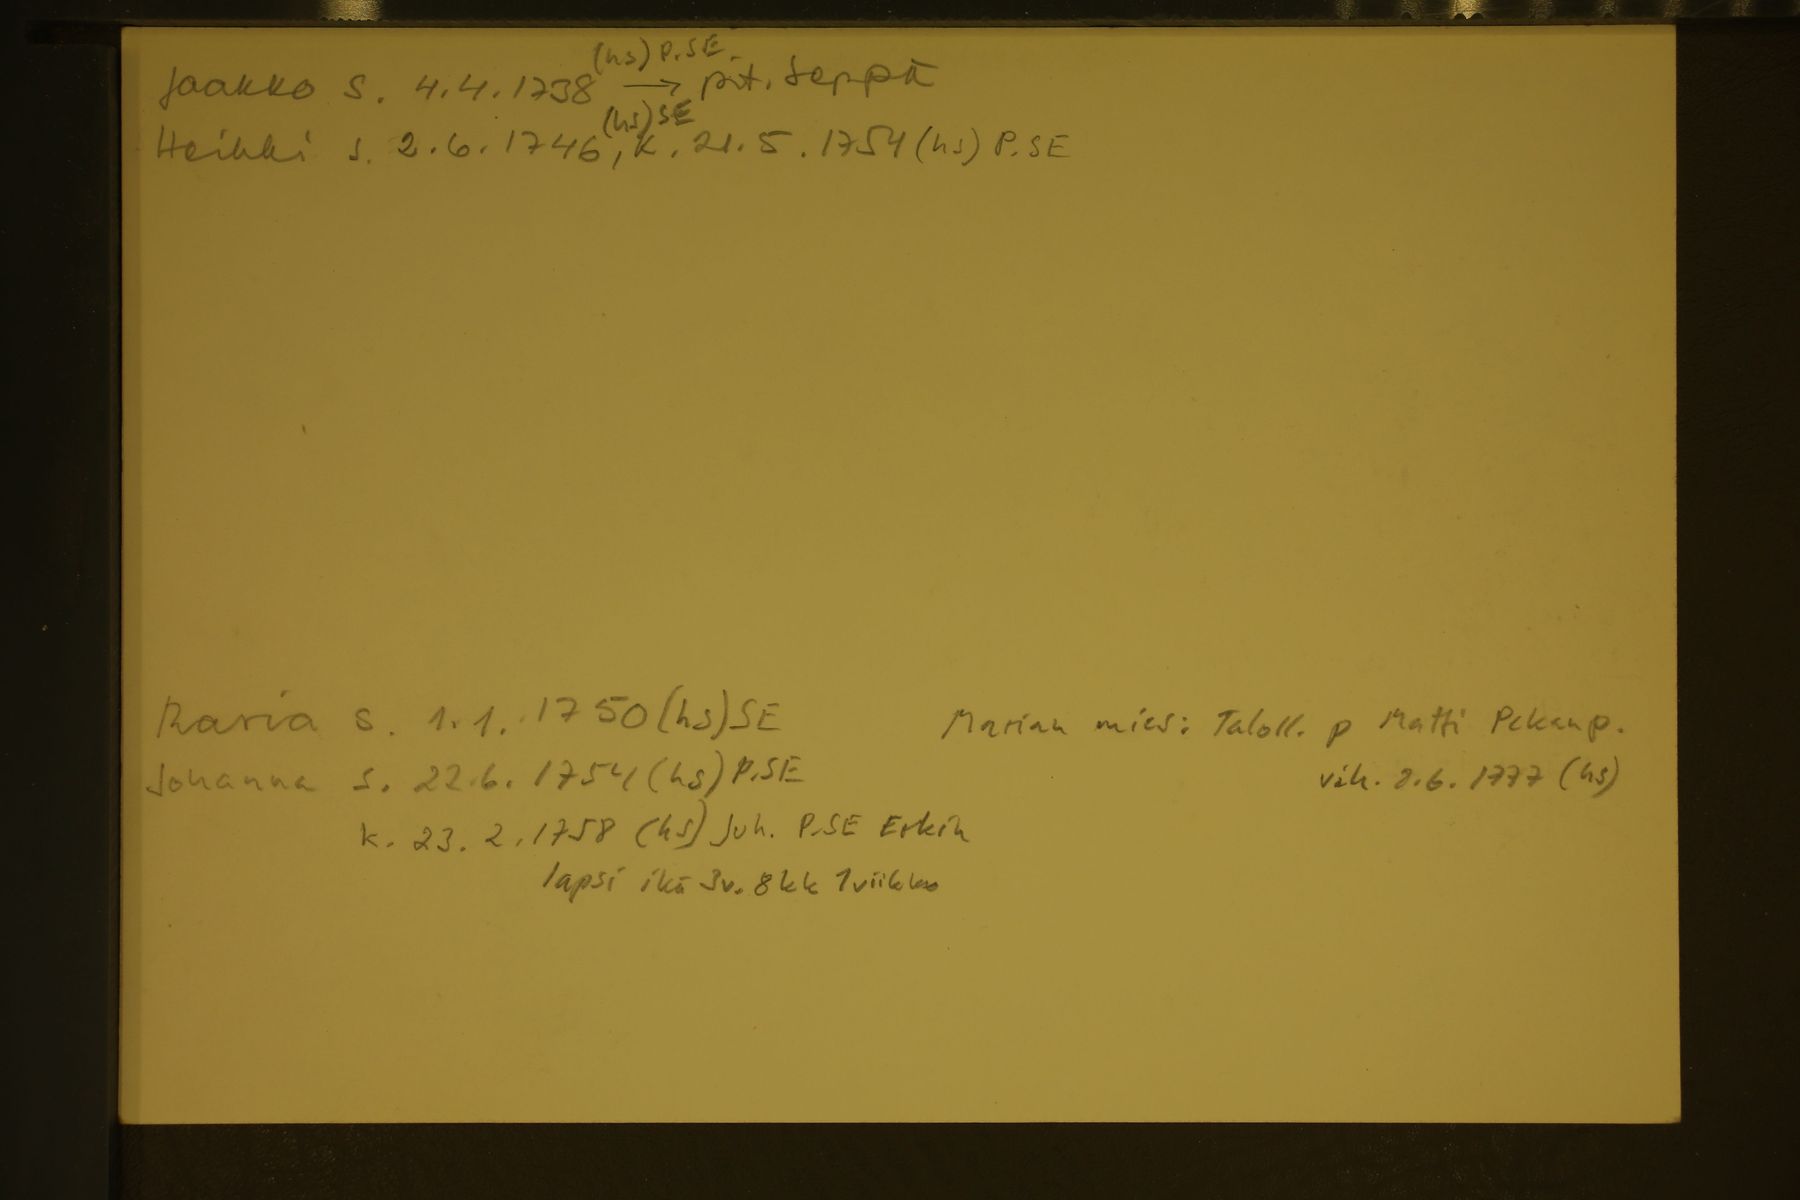 (hs) P.SE.
Jaakko s. 4.4.1738 → pit. seppä
(hs) SE
Heikki s. 2.6.1746, k. 21.5.1754 (hs) P.SE
Maria s. 1.1.1750 (hs) SE Marian mies: Taloll. p Matti Pekanp.
Johanna s. 22.6.1754 (hs) P.SE vih. 8.6.1777 (hs)
k. 23.2.1758 (hs) Juh. P.SE Erkin
lapsi ikä 3v. 8kk 1viikko